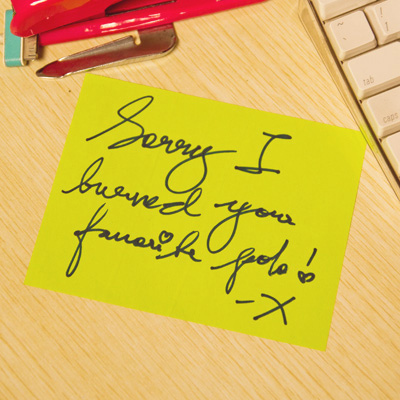 Sorry I
burned your
favorite polo!
-X
tab
caps